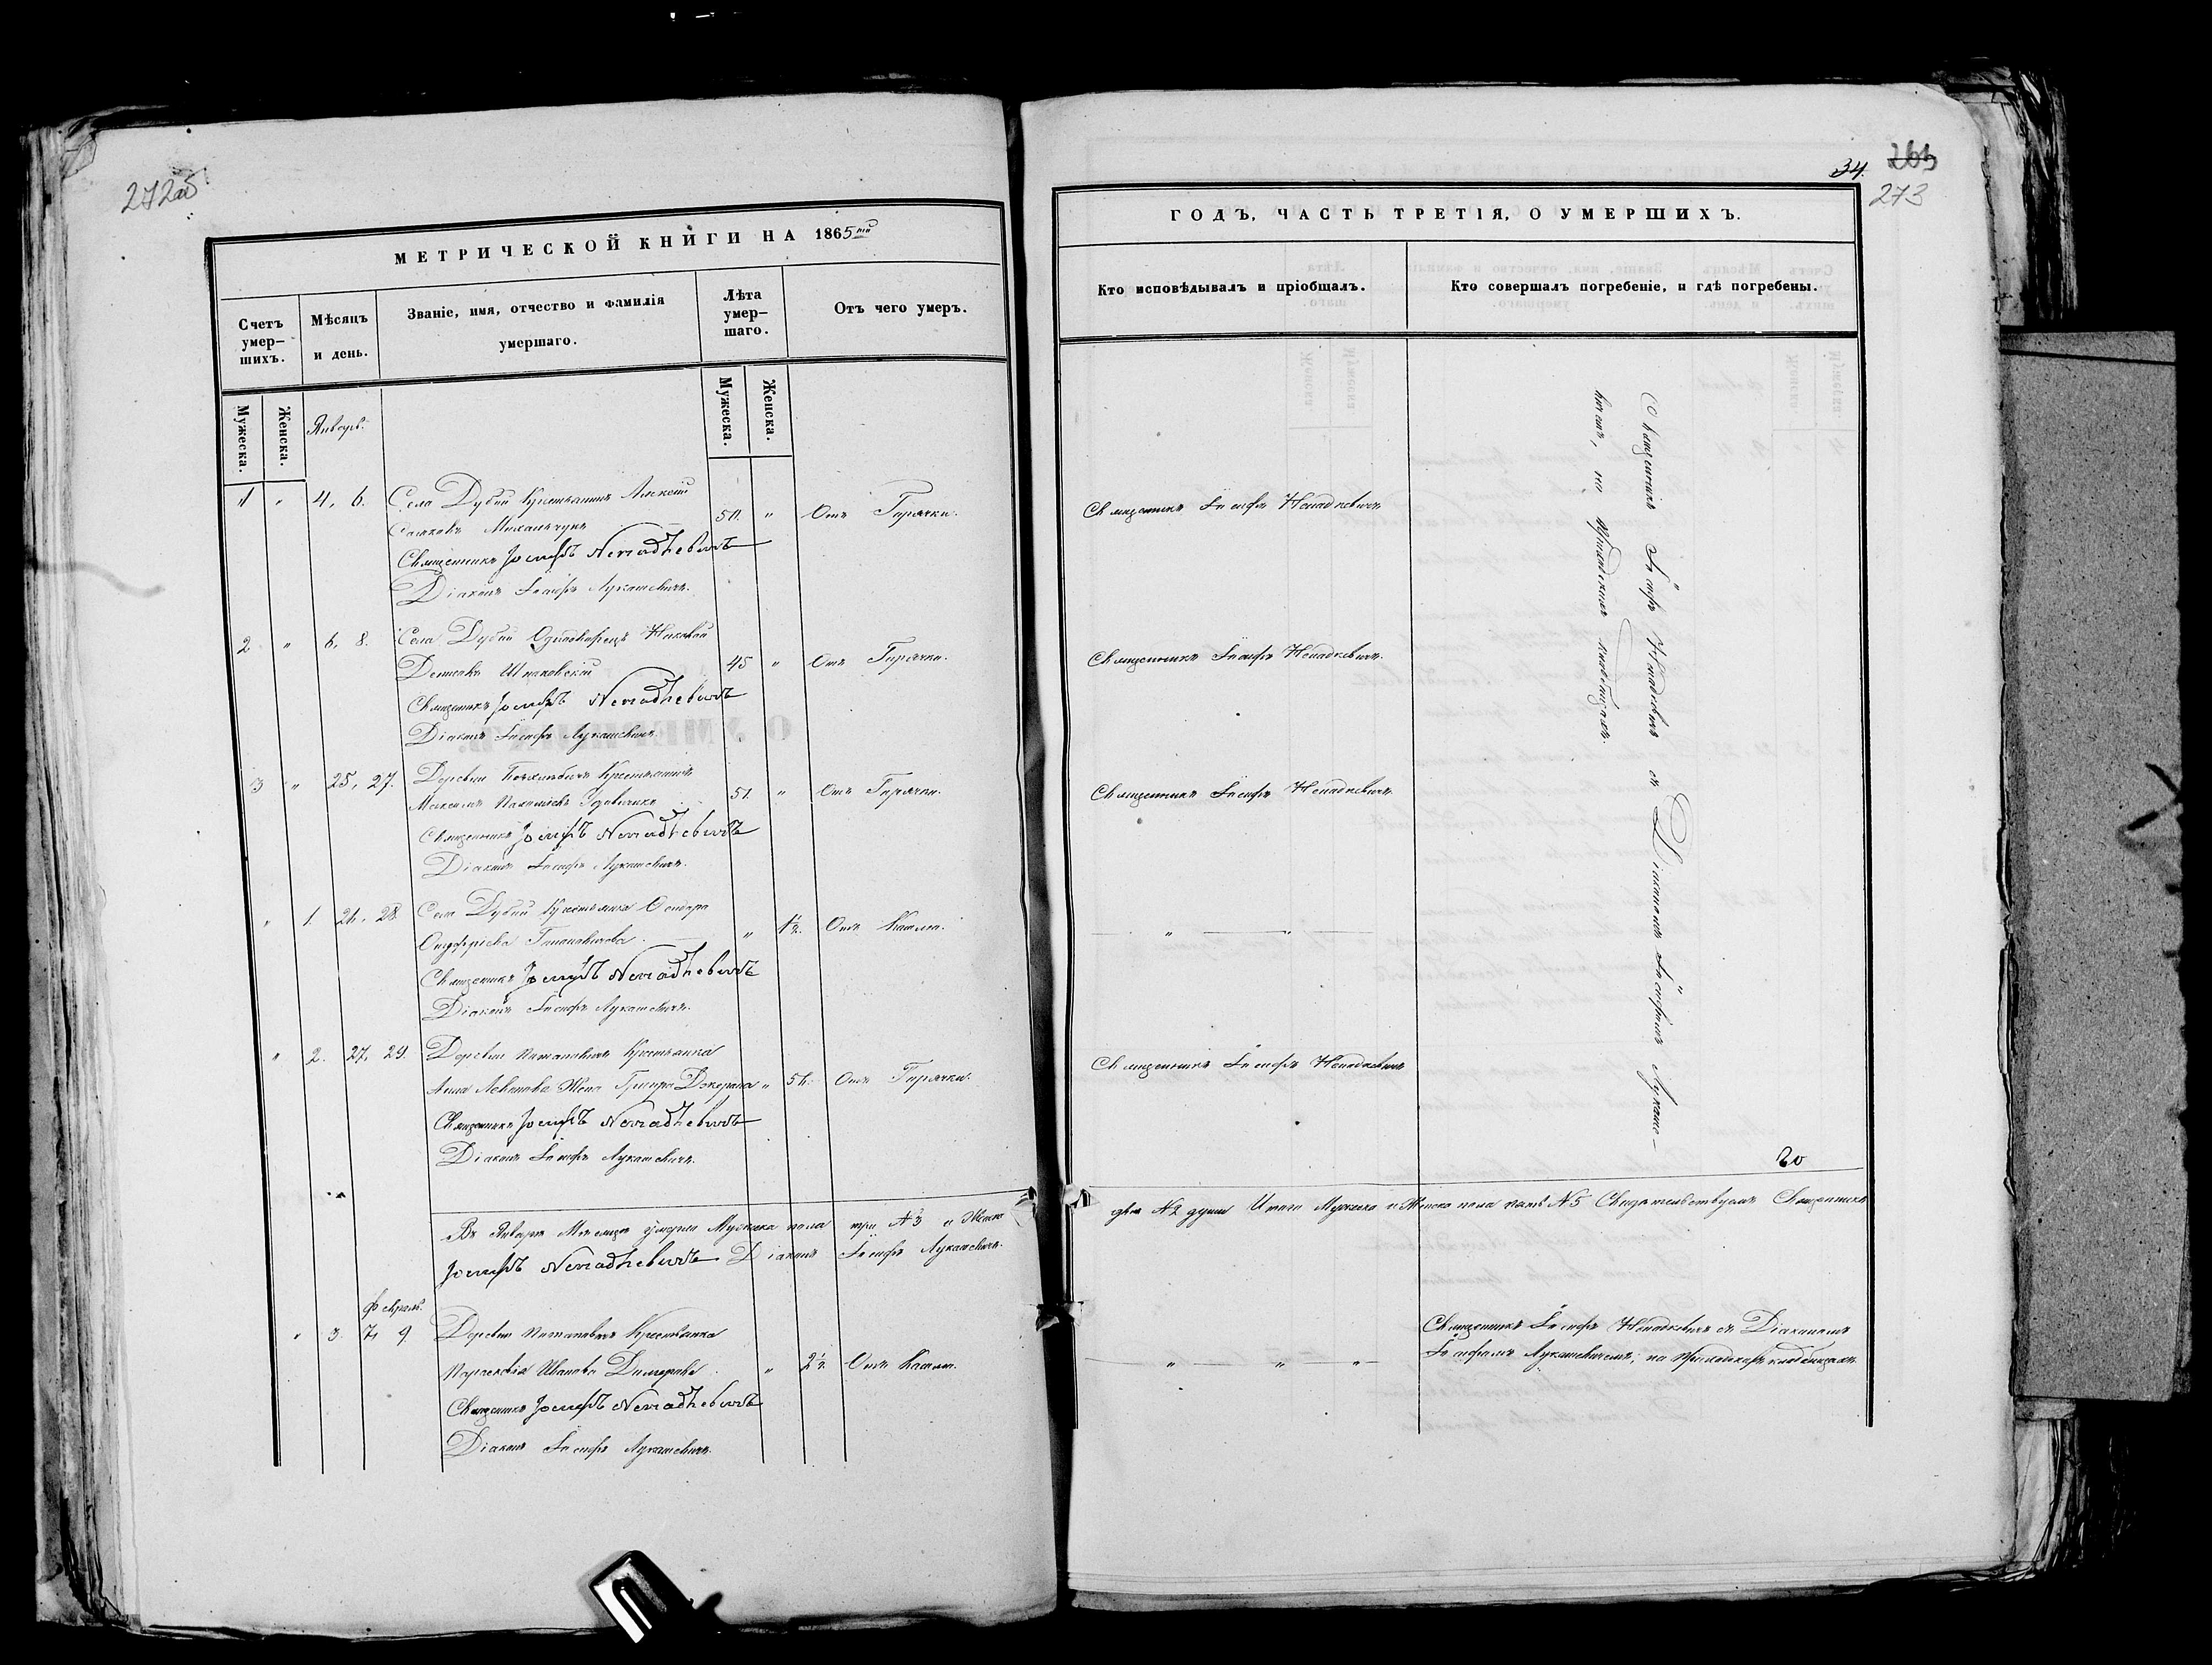 272об
МЕТРИЧЕСКОЙ КНИГИ НА 1865ый
Счетъ умер-шихъ.
Мѣсяцъ и день.
Званіе, имя, отчество и фамилія умершаго.
Лѣта умер-шаго.
Отъ чего умеръ.
Мужеска.
Женска.
Мужеска.
Женска.
Январь.
1 " 4, 6. Села Дубий Крестьянинъ Алексій
Михальчукъ 50. " Отъ Горячки.
Священникъ Іосифъ Ненадкевичъ
Діаконъ Іосифъ Лукашевичъ.
2 " 6, 8. Села Дубий Однодворецъ Николай
Шпаковскій 45 " Отъ Горячки.
Священникъ Іосифъ Ненадкевичъ
Діаконъ Іосифъ Лукашевичъ.
3 " 25, 27. Деревни Крестьянинъ
Максимъ 51. " Отъ Горячки.
Священникъ Іосифъ Ненадкевичъ
Діаконъ Іосифъ Лукашевичъ.
" 1. 26, 28. Села Дубий Крестьянка
" 1½. Отъ Кашля.
Священникъ Іосифъ Ненадкевичъ
Діаконъ Іосифъ Лукашевичъ.
" 2. 27, 29. Деревни Крестьянка
Анна Жена " 56. Отъ Горячки.
Священникъ Іосифъ Ненадкевичъ
Діаконъ Іосифъ Лукашевичъ.
Въ Январѣ Мѣсяцѣ умерло Мужеска пола три №3 и Женска
Іосифъ Ненадкевичъ Діаконъ Іосифъ Лукашевичъ.
Февраль.
" 3. 7, 9 Деревни Крестьянка
Параскевія Иванова " 2½. Отъ Кашля.
Священникъ Іосифъ Ненадкевичъ
Діаконъ Іосифъ Лукашевичъ.
34.
273
ГОДЪ, ЧАСТЬ ТРЕТІЯ, О УМЕРШИХЪ.
Кто исповѣдывалъ и пріобщалъ.
Кто совершалъ погребеніе, и гдѣ погребены.
Священникъ Іосифъ Ненадкевичъ
Священникъ Іосифъ Ненадкевичъ.
Священникъ Іосифъ Ненадкевичъ
"
Священникъ Іосифъ Ненадкевичъ
Священникъ Іосифъ Ненадкевичъ съ Діакономъ Іосифомъ Лукаше-
вичемъ, на Приходскихъ кладбищахъ.
двѣ №2 души Итого Мужеска и Женска пола пять №5 Свидѣтельствуемъ Священникъ
Священникъ Іосифъ Ненадкевичъ съ Діакономъ
" " " Іосифомъ Лукашевичемъ, на Приходскихъ кладбищахъ.